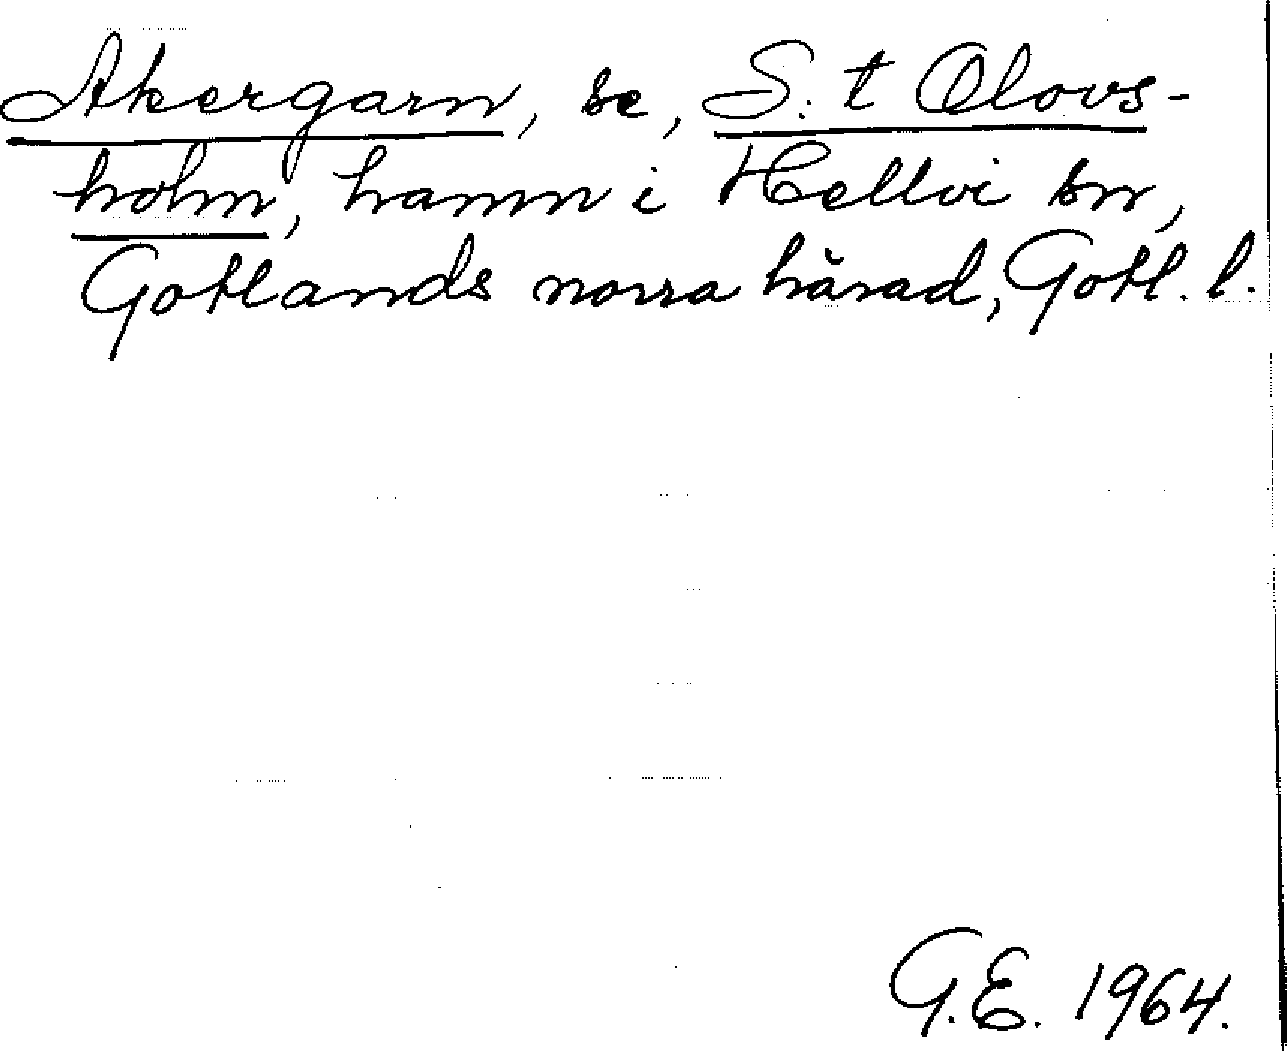 Akergarn, se, S:t Olovs-
holm, hamn i Hellvi sn,
Gotlands norra härad, Gotl. l.
G.E. 1964.